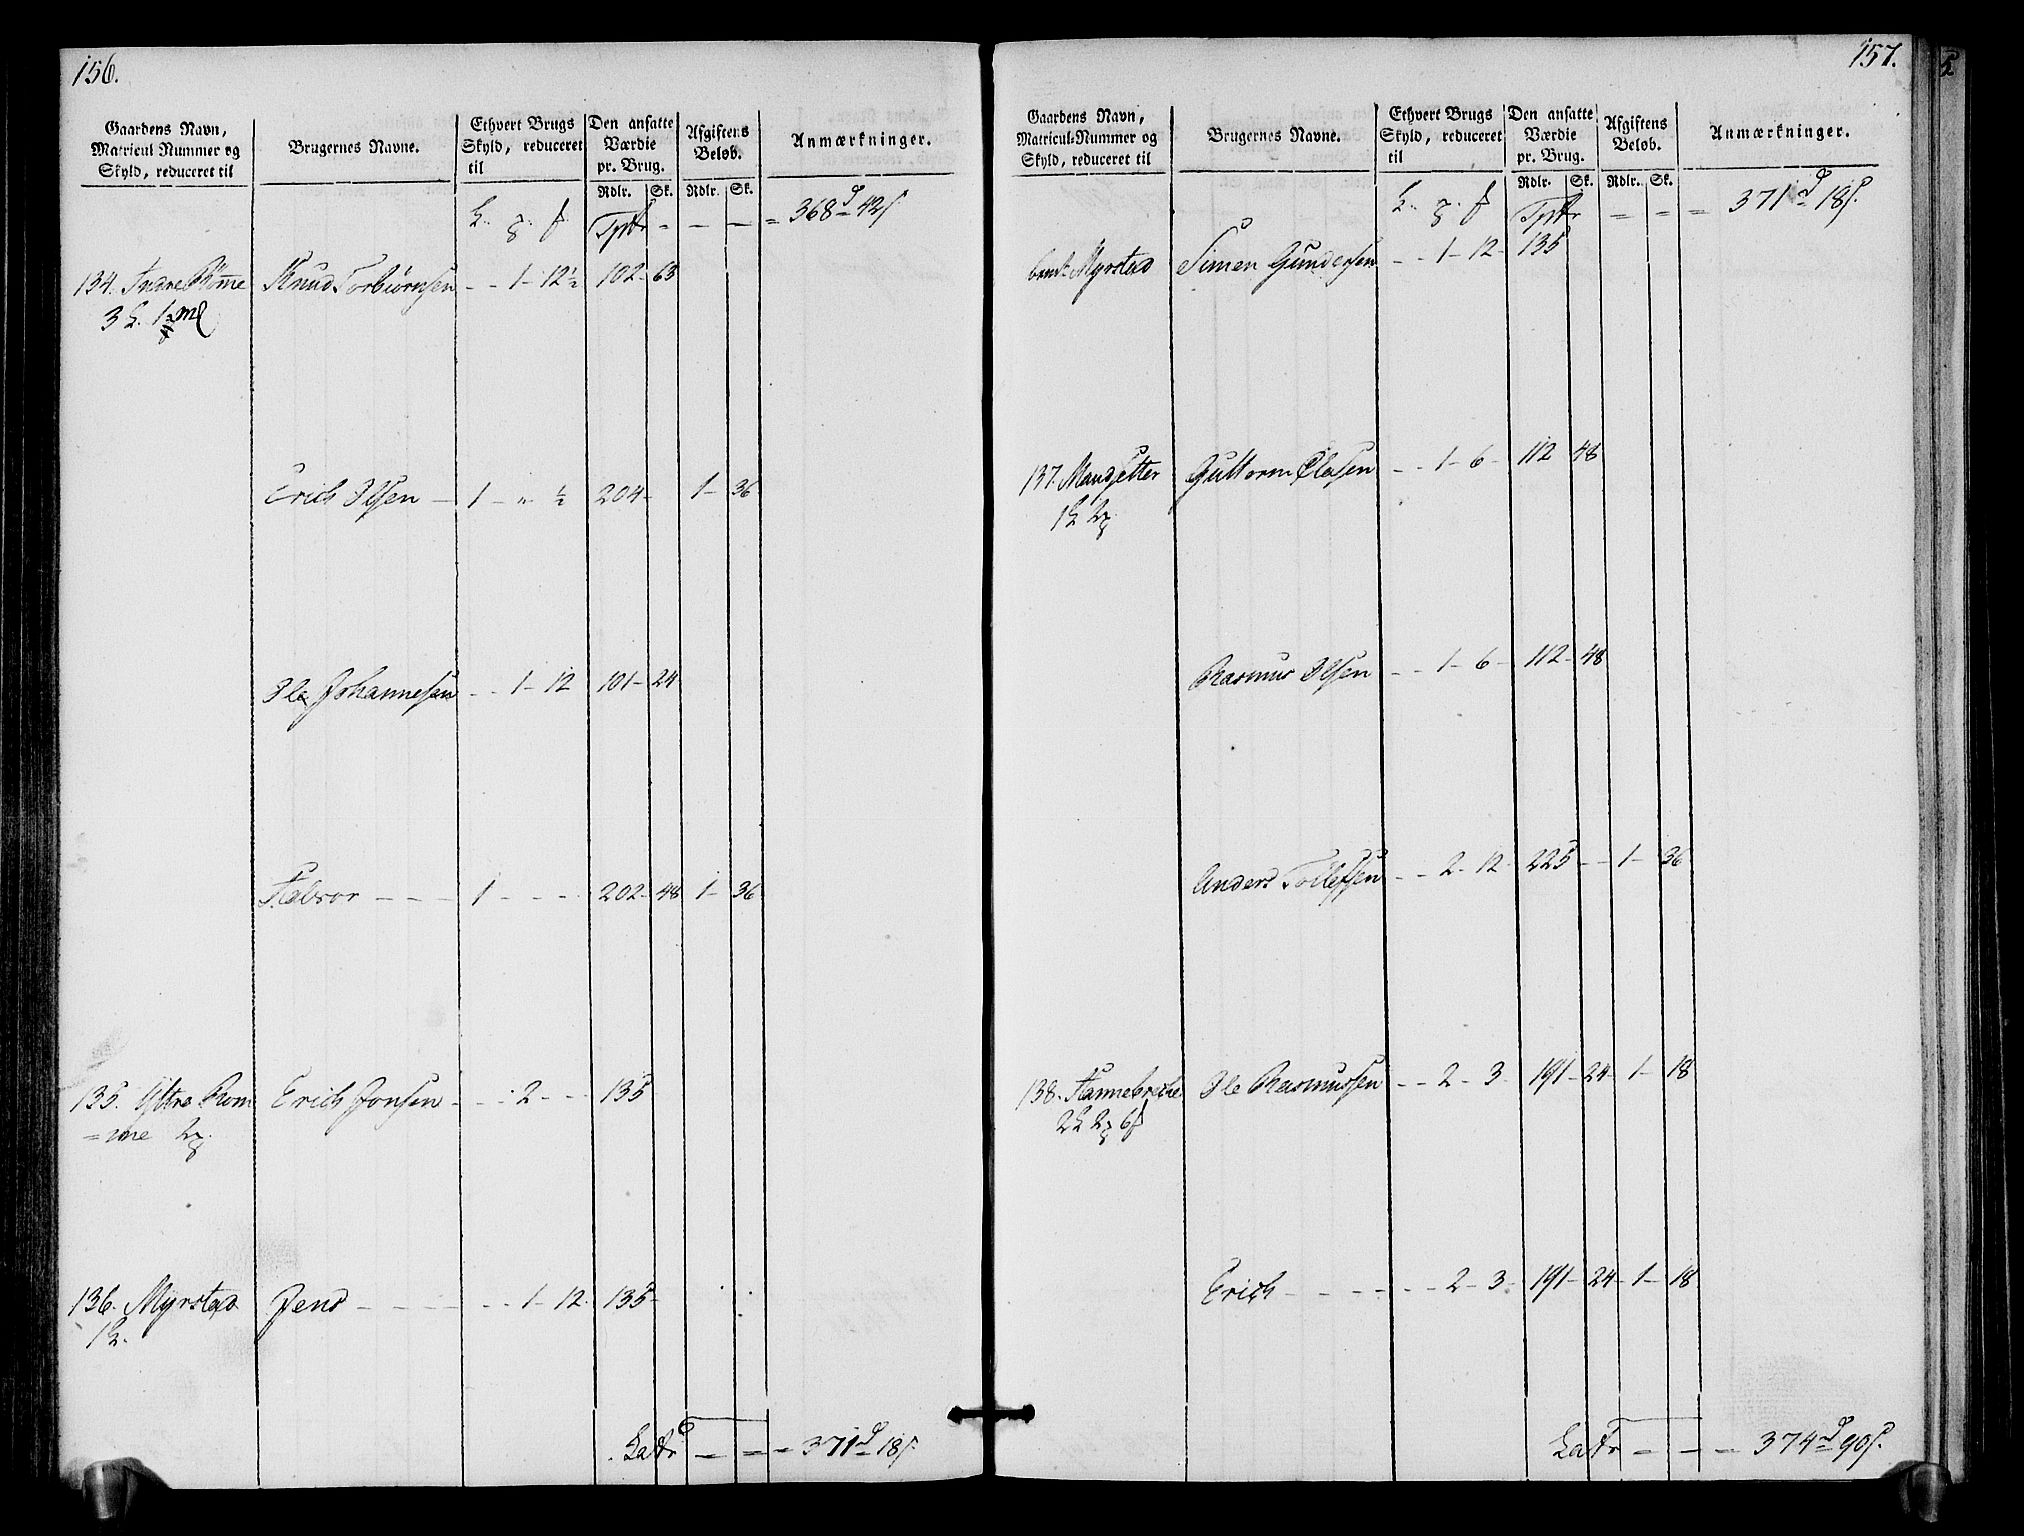 156.
Gaardens Navn, Matricul Nummer og Skyld, reduceret til | Brugernes Navne. | Ethvert Brugs Skyld, reduceret til | Den ansatte Værdie pr. Brug. | Afgiftens Beløb. | Anmærkninger.
Rdlr. Sk. Rdlr. Sk.
Tpt = – – = 368 d 42 s
134. Indre Rømme Knud Torbiørnsen - - 1 - 12 ½ 102 - 63
Erich Olsen – 1 - " - ½ 204 - 1 - 36
Ole Johannesen - - 1 - 12 101 - 24
Halvor – – – 1 - - - 202 - 48 1 - 36
135. Ystre Rom Erich Jonsen - - 2 - - 135
= me
136. Myrstad Jens – – – - - 1 - 12 135 -
Latr – = = 371 d 18 s.
157.
Gaardens Navn, Matricul-Nummer og Skyld, reduceret til | Brugernes Navne. | Ethvert Brugs Skyld, reduceret til | Den ansatte Værdie pr. Brug. | Afgiftens Beløb. | Anmærkninger.
Rdlr. Sk. Rdlr. Sk.
Tpt = = = 371 d 18 s.
Myrstad Simen Gundersen - - 1 - 12 - 135
137. Maugsetter Guttorm Olesen - - 1 - 6 - 112 48
Rasmus Olsen - - 1 - 6 - 112 - 48
Anders Tollefsen - - 2 - 12 - 225 - - 1 - 36
138. Hannebreche Ole Rasmussen - - 2 - 3 - 191 - 24 - 1 - 18
Erich - - - - - 2 - 3 - 191 - 24 - 1 - 18
Latr = – = 374 d 90 s.